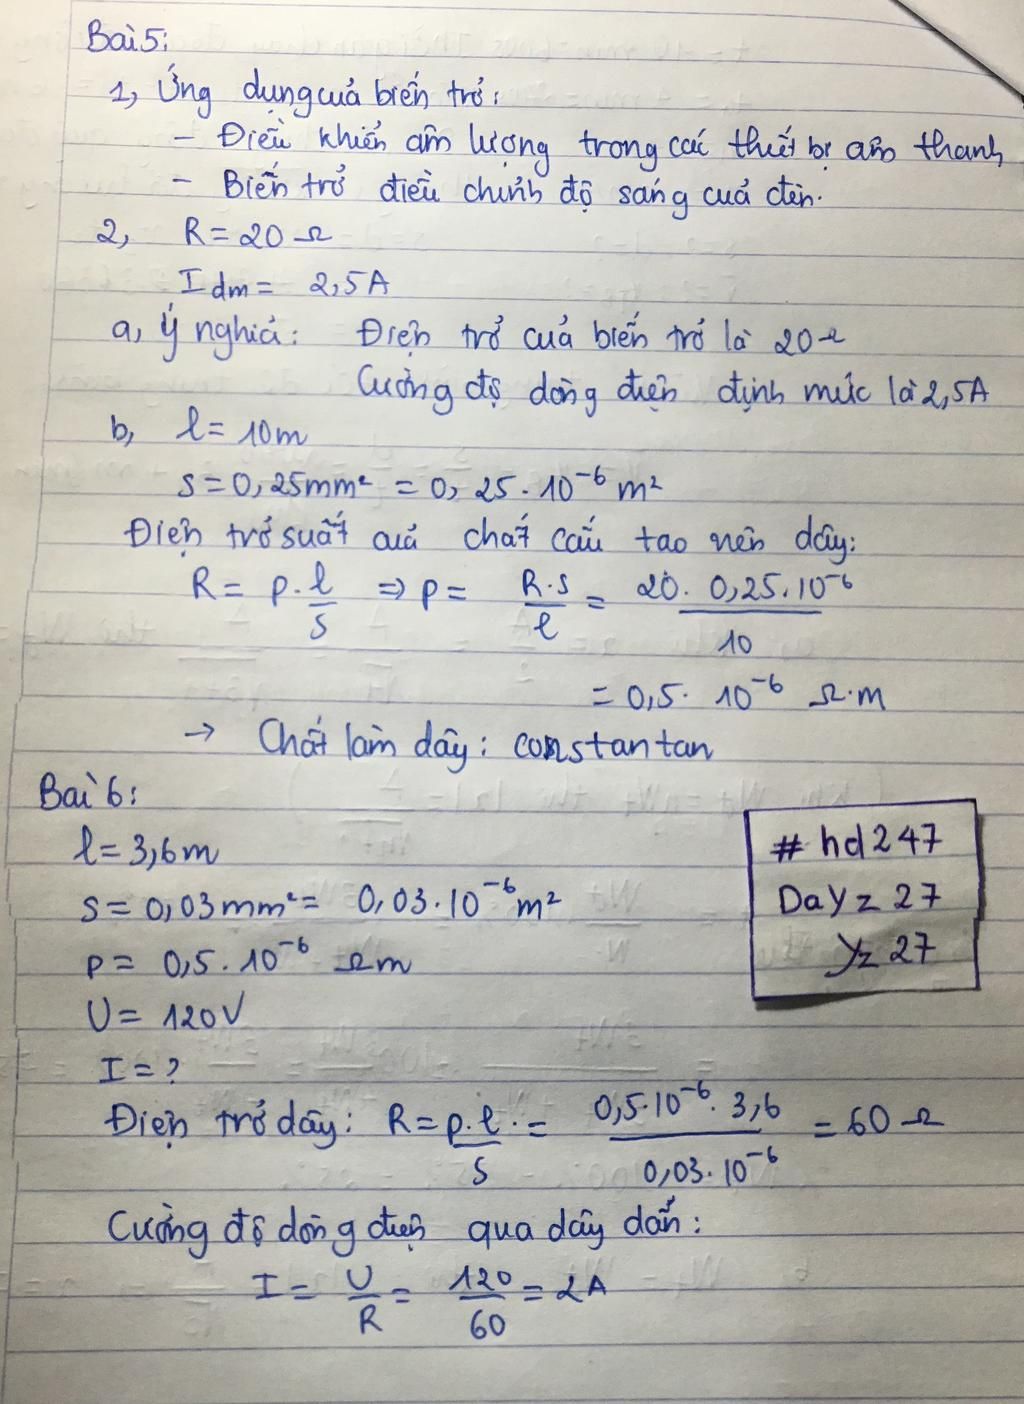 Bài 5:
1, Ứng dụng của biến trở:
- Điều khiển âm lượng trong các thiết bị âm thanh
- Biến trở điều chỉnh độ sáng của đèn.
2, R = 20 Ω
I dm = 2,5A
a, Ý nghĩa: Điện trở của biến trở là 20 Ω
Cường độ dòng điện định mức là 2,5A
b, l = 10m
S = 0,25mm² = 0,25.10⁻⁶ m²
Điện trở suất của chất cấu tạo nên dây:
R = p.l/S => p = R.S/l = 20.0,25.10⁻⁶/10
= 0,5.10⁻⁶ Ω.m
→ Chất làm dây: constantan
Bài 6:
l = 3,6m
S = 0,03mm² = 0,03.10⁻⁶m²
p = 0,5.10⁻⁶ Ωm
U = 120V
I = ?
Điện trở dây: R = p.l/S. = 0,5.10⁻⁶.3,6/0,03.10⁻⁶ = 60 Ω
Cường độ dòng điện qua dây dẫn:
I = U/R = 120/60 = 2A
# hd247
DaYz 27
Yz 27